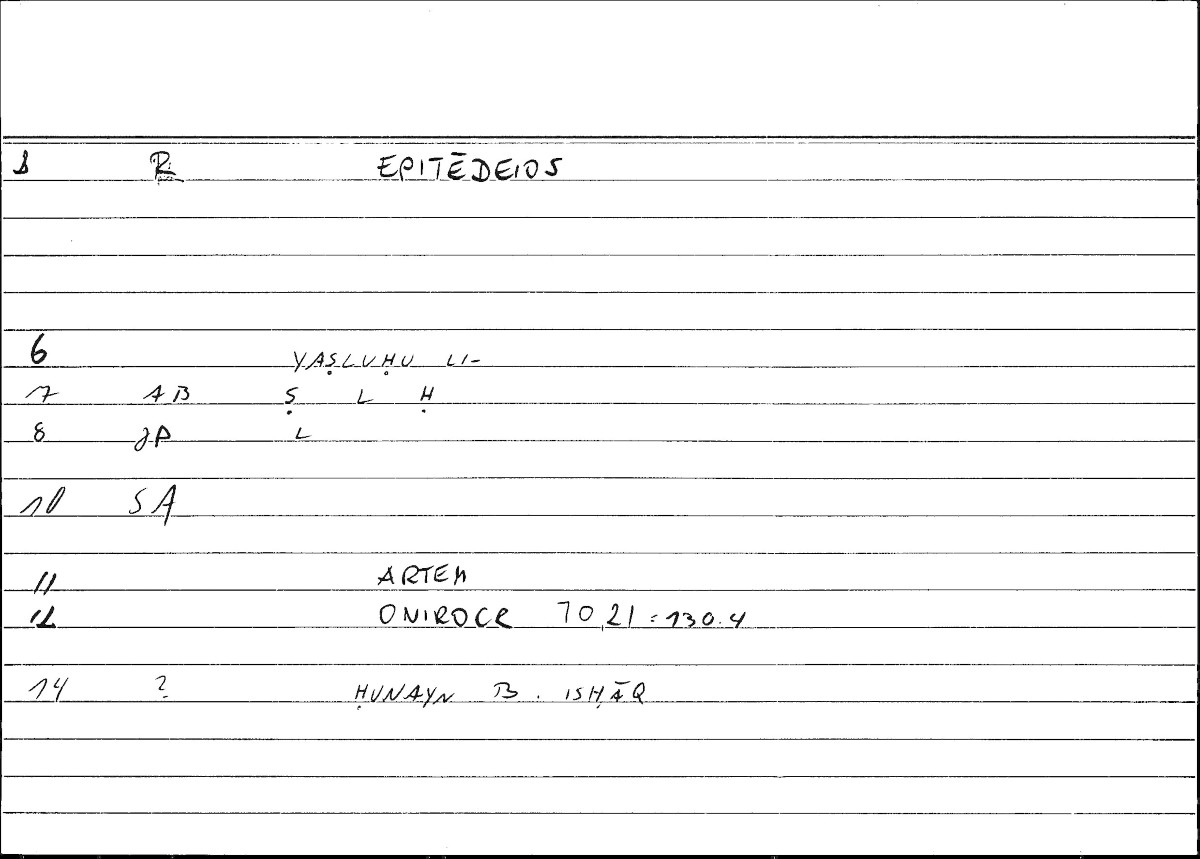 R EPITĒDEIOS
6 YAṢLUḤU LI-
7 AB Ṣ L Ḥ
8 JP L
10 SA
11 ARTEM
12 ONIROCR 70,21 = 130.4
14 ? ḤUNAYN B. ISḤĀQ